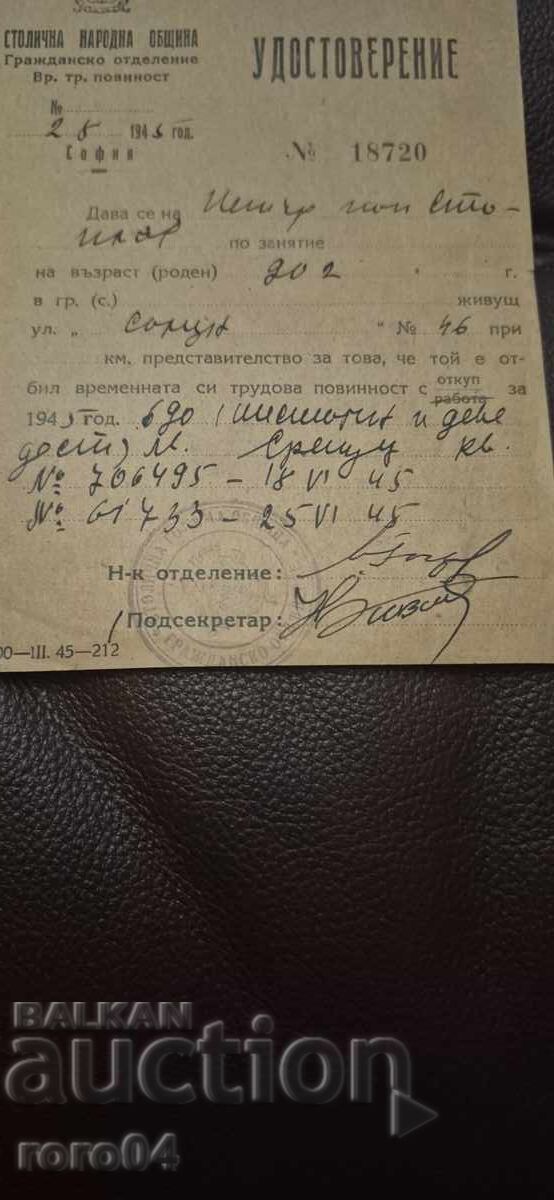 СТОЛИЧНА НАРОДНА ОБЩИНА
Гражданско отделение
Вр. тр. повиност
УДОСТОВЕРЕНИЕ
№
2 8 1945 год.
София
№ 18720
Дава се на Петър поп Сто-
по занятие
на възраст (роден) 902 г.
в гр. (с.) живущ
ул. „ " № 46 при
км. представителство за това, че той е от-
бил временната си трудова повинност с откуп работа за
1945 год. 620 (шестотин и две
десет) лв. Срещу кв.
№ 706495 - 18 VI 45
№ 61733 - 25 VI 45
Н-к отделение:
Подсекретар:
00—III. 45—212
BALKAN
auction
roro04